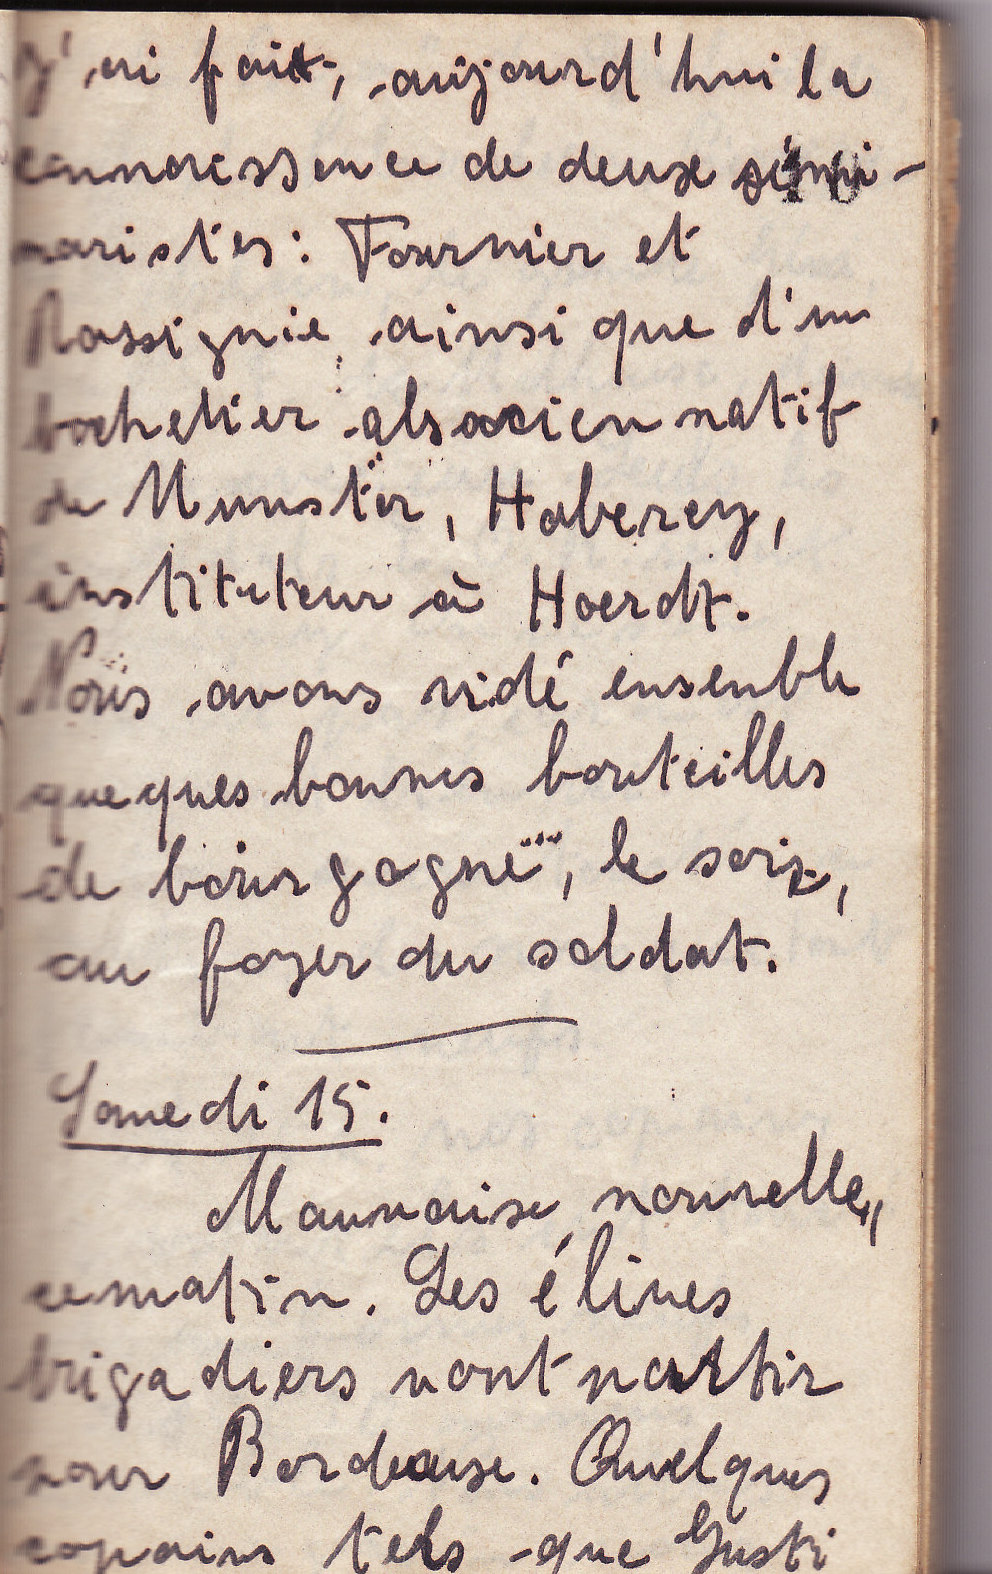 J'ai fait, aujourd'hui la
connaissance de deux sémi-
naristes : Fournier et
Rossignie, ainsi que d'un
bachelier alsacien natif
de Munster, Haberey,
instituteur à Hoerdt.
Nous avons vidé ensemble
queques bonnes bouteilles
de bourgogne, le soir,
au foyer du soldat.
Samedi 15.
Mauvaise nouvelle,
ce matin. Les élèves
brigadiers vont partir
pour Bordeaux. Quelques
copains tels que Gusti